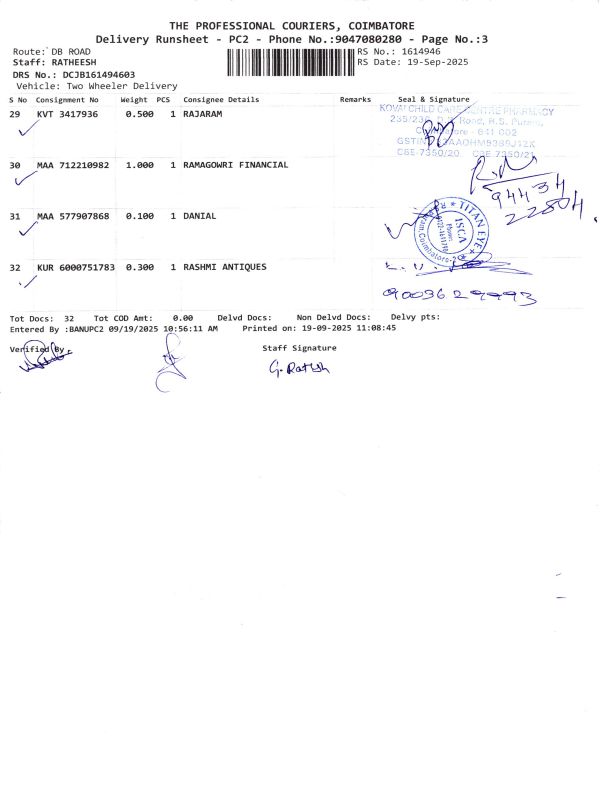 THE PROFESSIONAL COURIERS, COIMBATORE
Delivery Runsheet - PC2 - Phone No.:9047080280 - Page No.:3
Route: DB ROAD
RS No.: 1614946
Staff: RATHEESH
RS Date: 19-Sep-2025
DRS No.: DCJB161494603
Vehicle: Two Wheeler Delivery
S No Consignment No Weight PCS Consignee Details Remarks Seal & Signature
29 KVT 3417936 0.500 1 RAJARAM
KOVAI CHILD CARE CENTRE PHARMACY
Road, R.S. Puram,
641 002
30 MAA 712210982 1.000 1 RAMAGOWRI FINANCIAL
94434
22804
31 MAA 577907868 0.100 1 DANIAL
TITAN EYE
ISCA
32 KUR 6000751783 0.300 1 RASHMI ANTIQUES
9003629993
Tot Docs: 32 Tot COD Amt: 0.00 Delvd Docs: Non Delvd Docs: Delvy pts:
Entered By :BANUPC2 09/19/2025 10:56:11 AM Printed on: 19-09-2025 11:08:45
Verified By
Staff Signature
G. Ratish